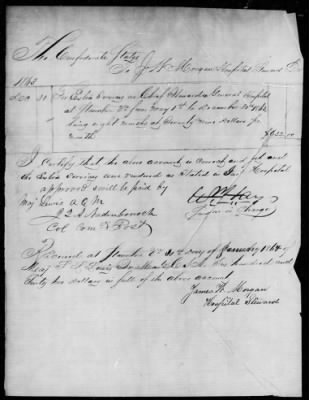 The Confederate States
To J. W. Morgan Hospital Steward Dr
1863
Dec 31 For Extra Services as Chief Steward in General Hospital
at Staunton Va from May 1st to December 31st 1863
being eight months at Seventy nine dollars per
month $632.00
I certify that the above account is correct and just and
the Extra Services were rendered as stated in Genl Hospital
approved & will be paid by
Maj Lewis A Q M
Col Com'g Post
Surgeon in Charge
Received at Staunton Va 30th day of January 1864 of
Maj Lewis Quarter Mr C. S. A. Six hundred and
thirty two dollars in full of the above account
James W. Morgan
Hospital Steward